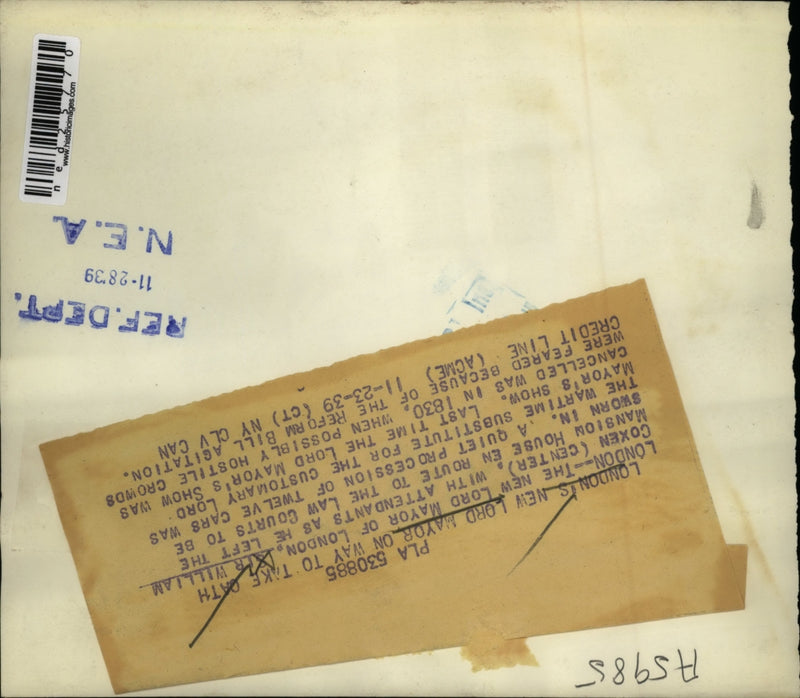 A5985
PLA 530885
LONDON'S NEW LORD MAYOR ON WAY TO TAKE OATH
LONDON--THE NEW LORD MAYOR OF LONDON, SIR WILLIAM
COXEN (CENTER), WITH ATTENDANTS AS HE LEFT THE
MANSION HOUSE EN ROUTE TO THE LAW COURTS TO BE
SWORN IN. A QUIET PROCESSION OF TWELVE CARS WAS
THE WARTIME SUBSTITUTE FOR THE CUSTOMARY LORD
MAYOR'S SHOW. LAST TIME THE LORD MAYOR'S SHOW WAS
CANCELLED WAS IN 1830, WHEN POSSIBLY HOSTILE CROWDS
WERE FEARED BECAUSE OF THE REFORM BILL AGITATION.
CREDIT LINE (ACME) 11-23-39 (CT) NY CLV CAN
REF.DEPT.
11-28'39
N.E.A.
www.historicimages.com